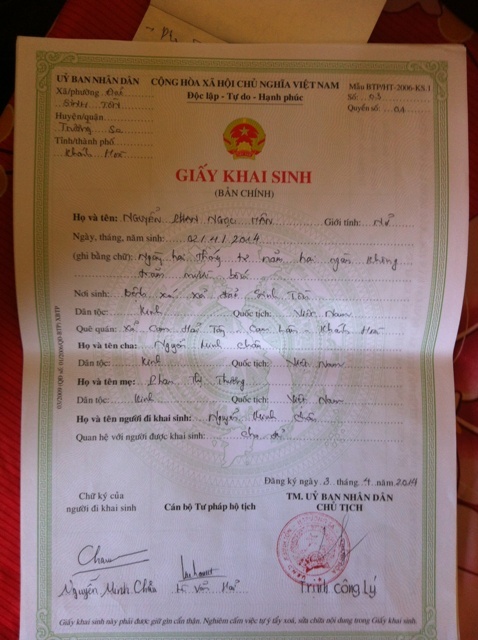 ỦY BAN NHÂN DÂN
Xã/phường: Đảo
Sinh Tồn
Huyện/quận:
Trường Sa
Tỉnh/thành phố
Khánh Hoà
CỘNG HÒA XÃ HỘI CHỦ NGHĨA VIỆT NAM
Độc lập - Tự do - Hạnh phúc
Mẫu BTP/HT-2006-KS.1
Số: 03
Quyển số: 01
GIẤY KHAI SINH
(BẢN CHÍNH)
Họ và tên: NGUYỄN PHAN NGỌC Giới tính: Nữ
Ngày, tháng, năm sinh: 02/4/2014
(ghi bằng chữ): Ngày hai tháng tư năm hai ngàn không
trăm mười bốn
Nơi sinh: Bệnh xá xã đảo Sinh Tồn
Dân tộc: Kinh Quốc tịch: Việt Nam
Quê quán: Xã Cam Hải Tây - Cam Lâm - Khánh Hoà
Họ và tên cha: Nguyễn Minh
Dân tộc: Kinh Quốc tịch: Việt Nam
Họ và tên mẹ: Phan Thị Thương
Dân tộc: Kinh Quốc tịch: Việt Nam
Họ và tên người đi khai sinh: Nguyễn Minh
Quan hệ với người được khai sinh: Cha đẻ
Đăng ký ngày 3 tháng 4 năm 2014
Chữ ký của
người đi khai sinh
Cán bộ Tư pháp hộ tịch
TM. UỶ BAN NHÂN DÂN
CHỦ TỊCH
Nguyễn Minh
Trịnh Công Lý
Giấy khai sinh này phải được giữ gìn cẩn thận. Nghiêm cấm việc tự ý tẩy xoá, sửa chữa nội dung trong Giấy khai sinh.